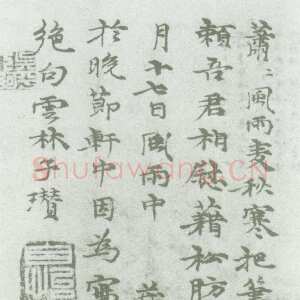 蕭〻風雨麦秋寒把筆
賴吾君相慰藉松肪
月十七日風雨中
於晚節軒中因為寫
絶句雲林子瓚
Shufawang.cn